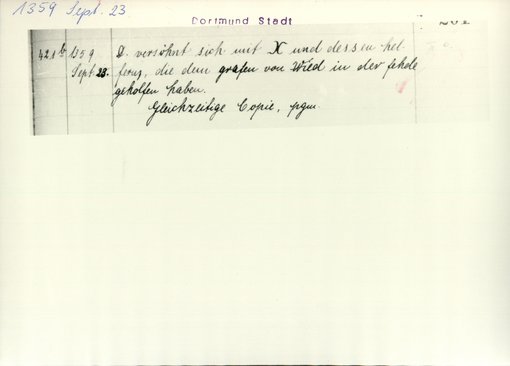 1359 Sept. 23
Dortmund Stadt
421b 1359 D. versöhnt sich mit X und dessen hel-
Sept 23. fern, die dem grafen von Wied in der fehde
geholfen haben.
Gleichzeitige Copie, pgm.